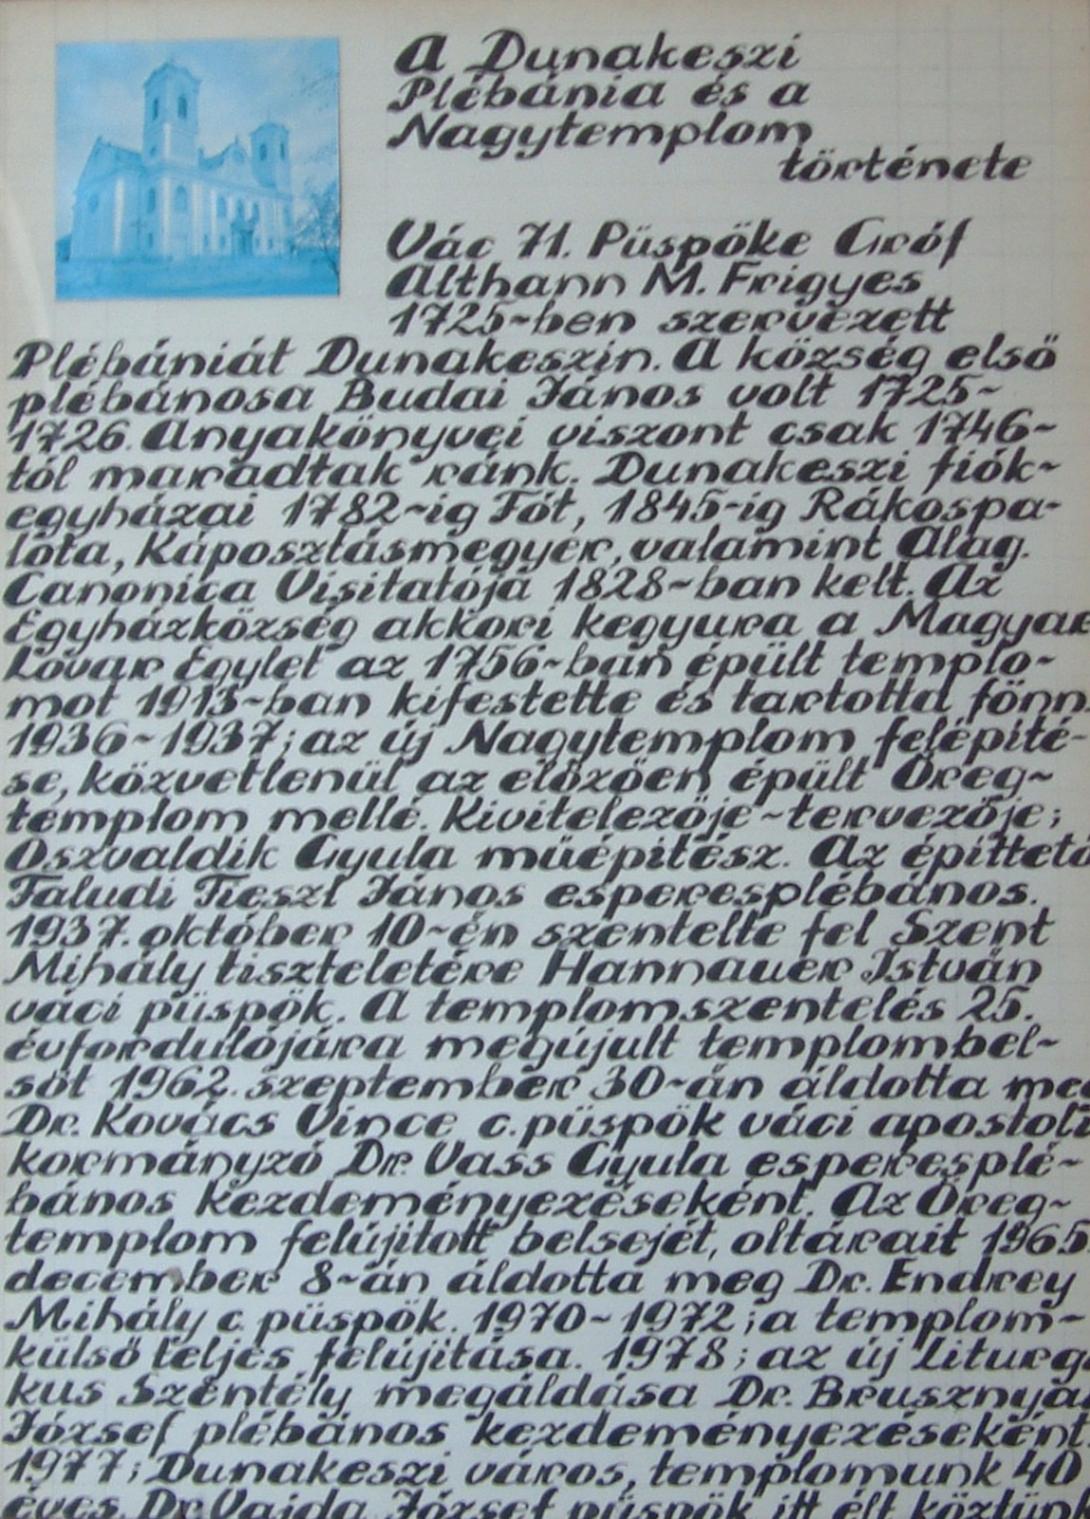 A Dunakeszi
Plébánia és a
Nagytemplom
története
Vác 71. Püspöke Gróf
Althann M. Frigyes
1725~ben szervezett
Plébániát Dunakeszin. A község első
plébánosa Budai János volt 1725~
1726. Anyakönyvei viszont csak 1746~
tól maradtak ránk. Dunakeszi fiók~
egyházai 1782~ig Fót, 1845-ig Rákospa-
lota, Káposztásmegyer, valamint Alag.
Canonica Visitatója 1828~ban kelt. Az
Egyházközség akkori kegyura a Magyar
Lovar Egylet az 1756~ban épült templo-
mot 1913~ban kifestette és tartotta fönn
1936~1937; az új Nagytemplom felépíté-
se, közvetlenül az előzően épült Öreg~
templom mellé. Kivitelezője~tervezője;
Oszvaldik Gyula műépítész. Az építtető
Faludi Tieszl János esperesplébános.
1937. október 10~én szentelte fel Szent
Mihály tiszteletére Hannauer István
váci püspök. A templomszentelés 25.
évfordulójára megújult templombel~
sőt 1962. szeptember 30~án áldotta me
Dr. Kovács Vince c. püspök váci apostoli
kormányzó Dr. Vass Gyula esperesplé~
bános kezdeményezéseként. Az Öreg~
templom felújított belsejét, oltárait 1965
december 8~án áldotta meg Dr. Endrey
Mihály c. püspök. 1970~1972; a templom~
külső teljes felújítása. 1978; az új Liturg
kus Szentély megáldása Dr. Brusznya
József plébános kezdeményezéseként
1977; Dunakeszi város, templomunk 40
éves. Dr. Vajda József püspök itt élt köztünk